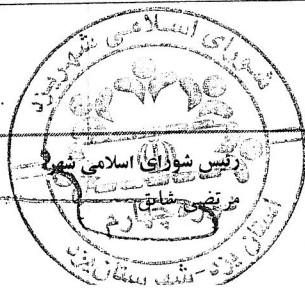 شورای اسلامی شهر یزد
رئیس شورای اسلامی شهر
مرتضی شایق
چهارم
استان یزد - شهرستان یزد